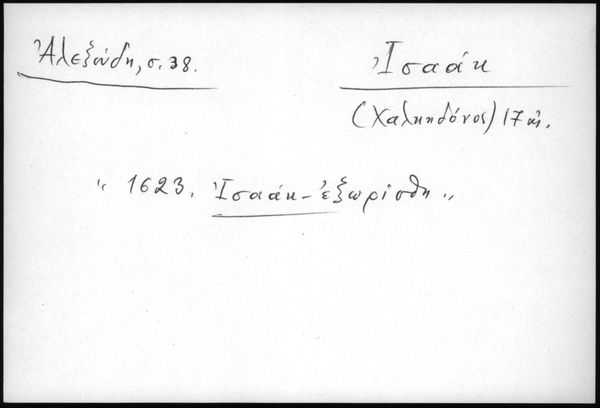 Ἀλεξούδη, σ. 38.
Ἰσαάκ
(Χαλκηδόνος) 17 αἰ.
" 1623. Ἰσαάκ - ἐξωρίσθη "